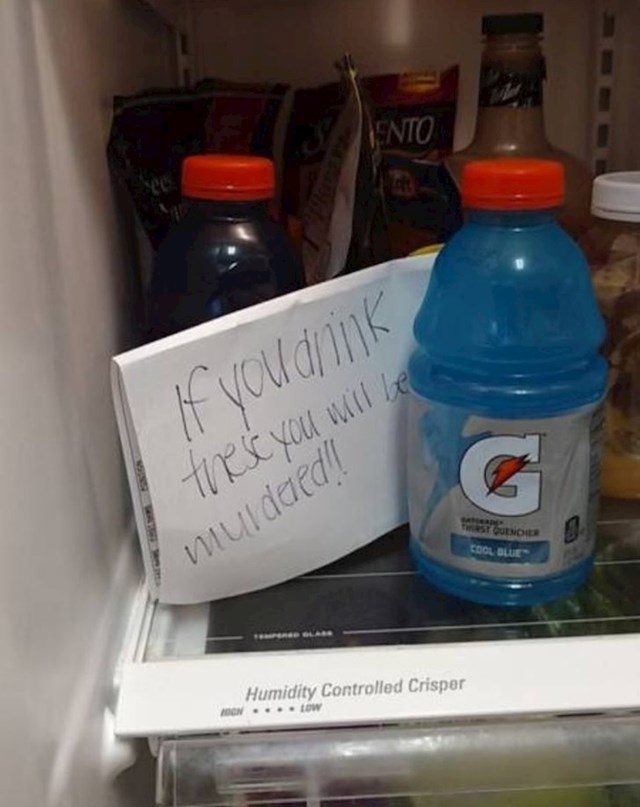 ENTO
If you drink
these you will be
murdered!!
G
GATORADE
THIRST QUENCHER
COOL BLUE
TEMPERED GLASS
Humidity Controlled Crisper
HIGH • • • • LOW